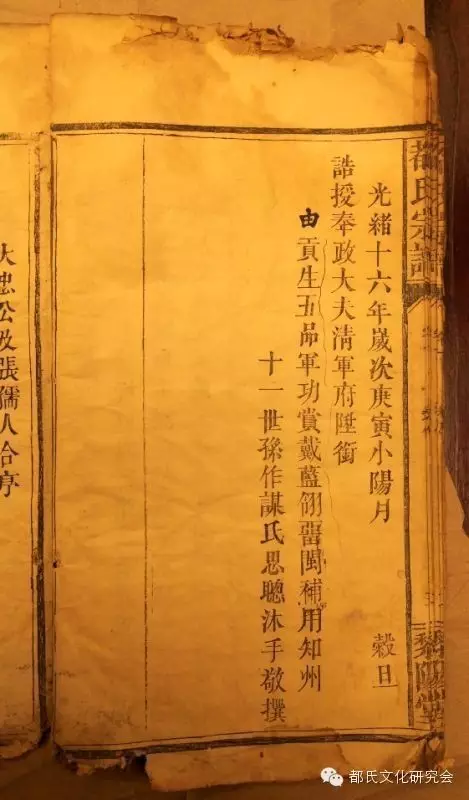 都氏宗譜
黎陽堂
光緒十六年歲次庚寅小陽月 穀旦
誥授奉政大夫清軍府陞銜
由貢生五品軍功賞戴藍翎畱閩補用知州
十一世孫作謀氏思聰沐手敬撰
大忠公及張孺人合序
都氏文化研究会